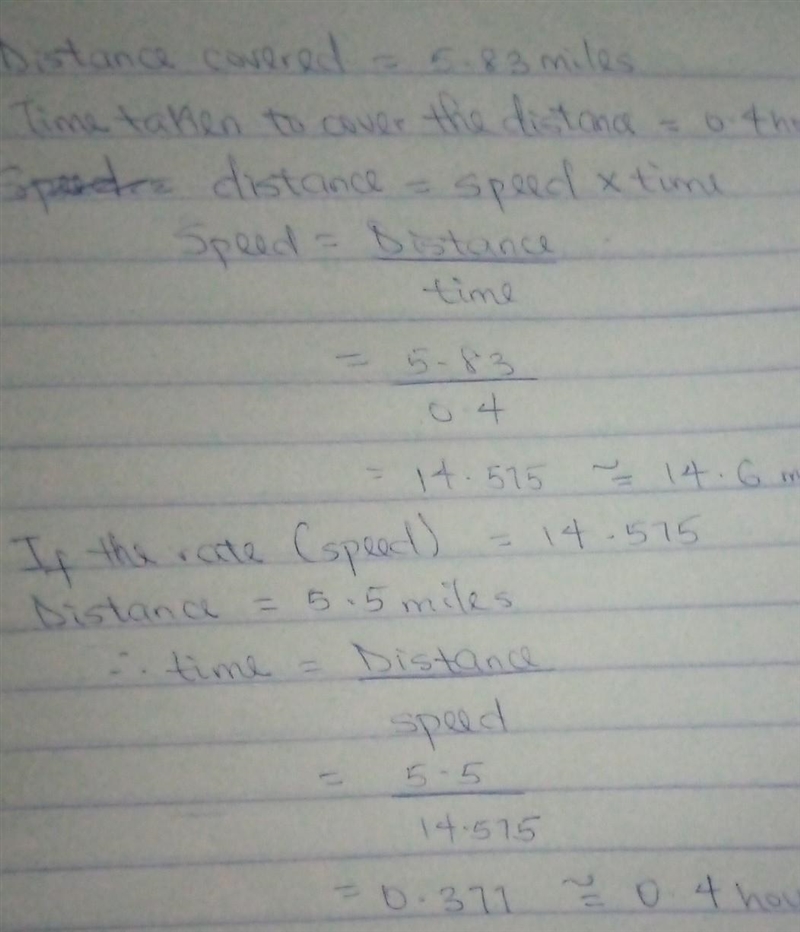 Distance covered = 5.83 miles
Time taken to cover the distance = 0.4 h
distance = speed x time
Speed = Distance
time
= 5.83
0.4
= 14.575 ≅ 14.6 m
If the rate (speed) = 14.575
Distance = 5.5 miles
∴ time = Distance
speed
= 5.5
14.575
= 0.377 ≅ 0.4 hou